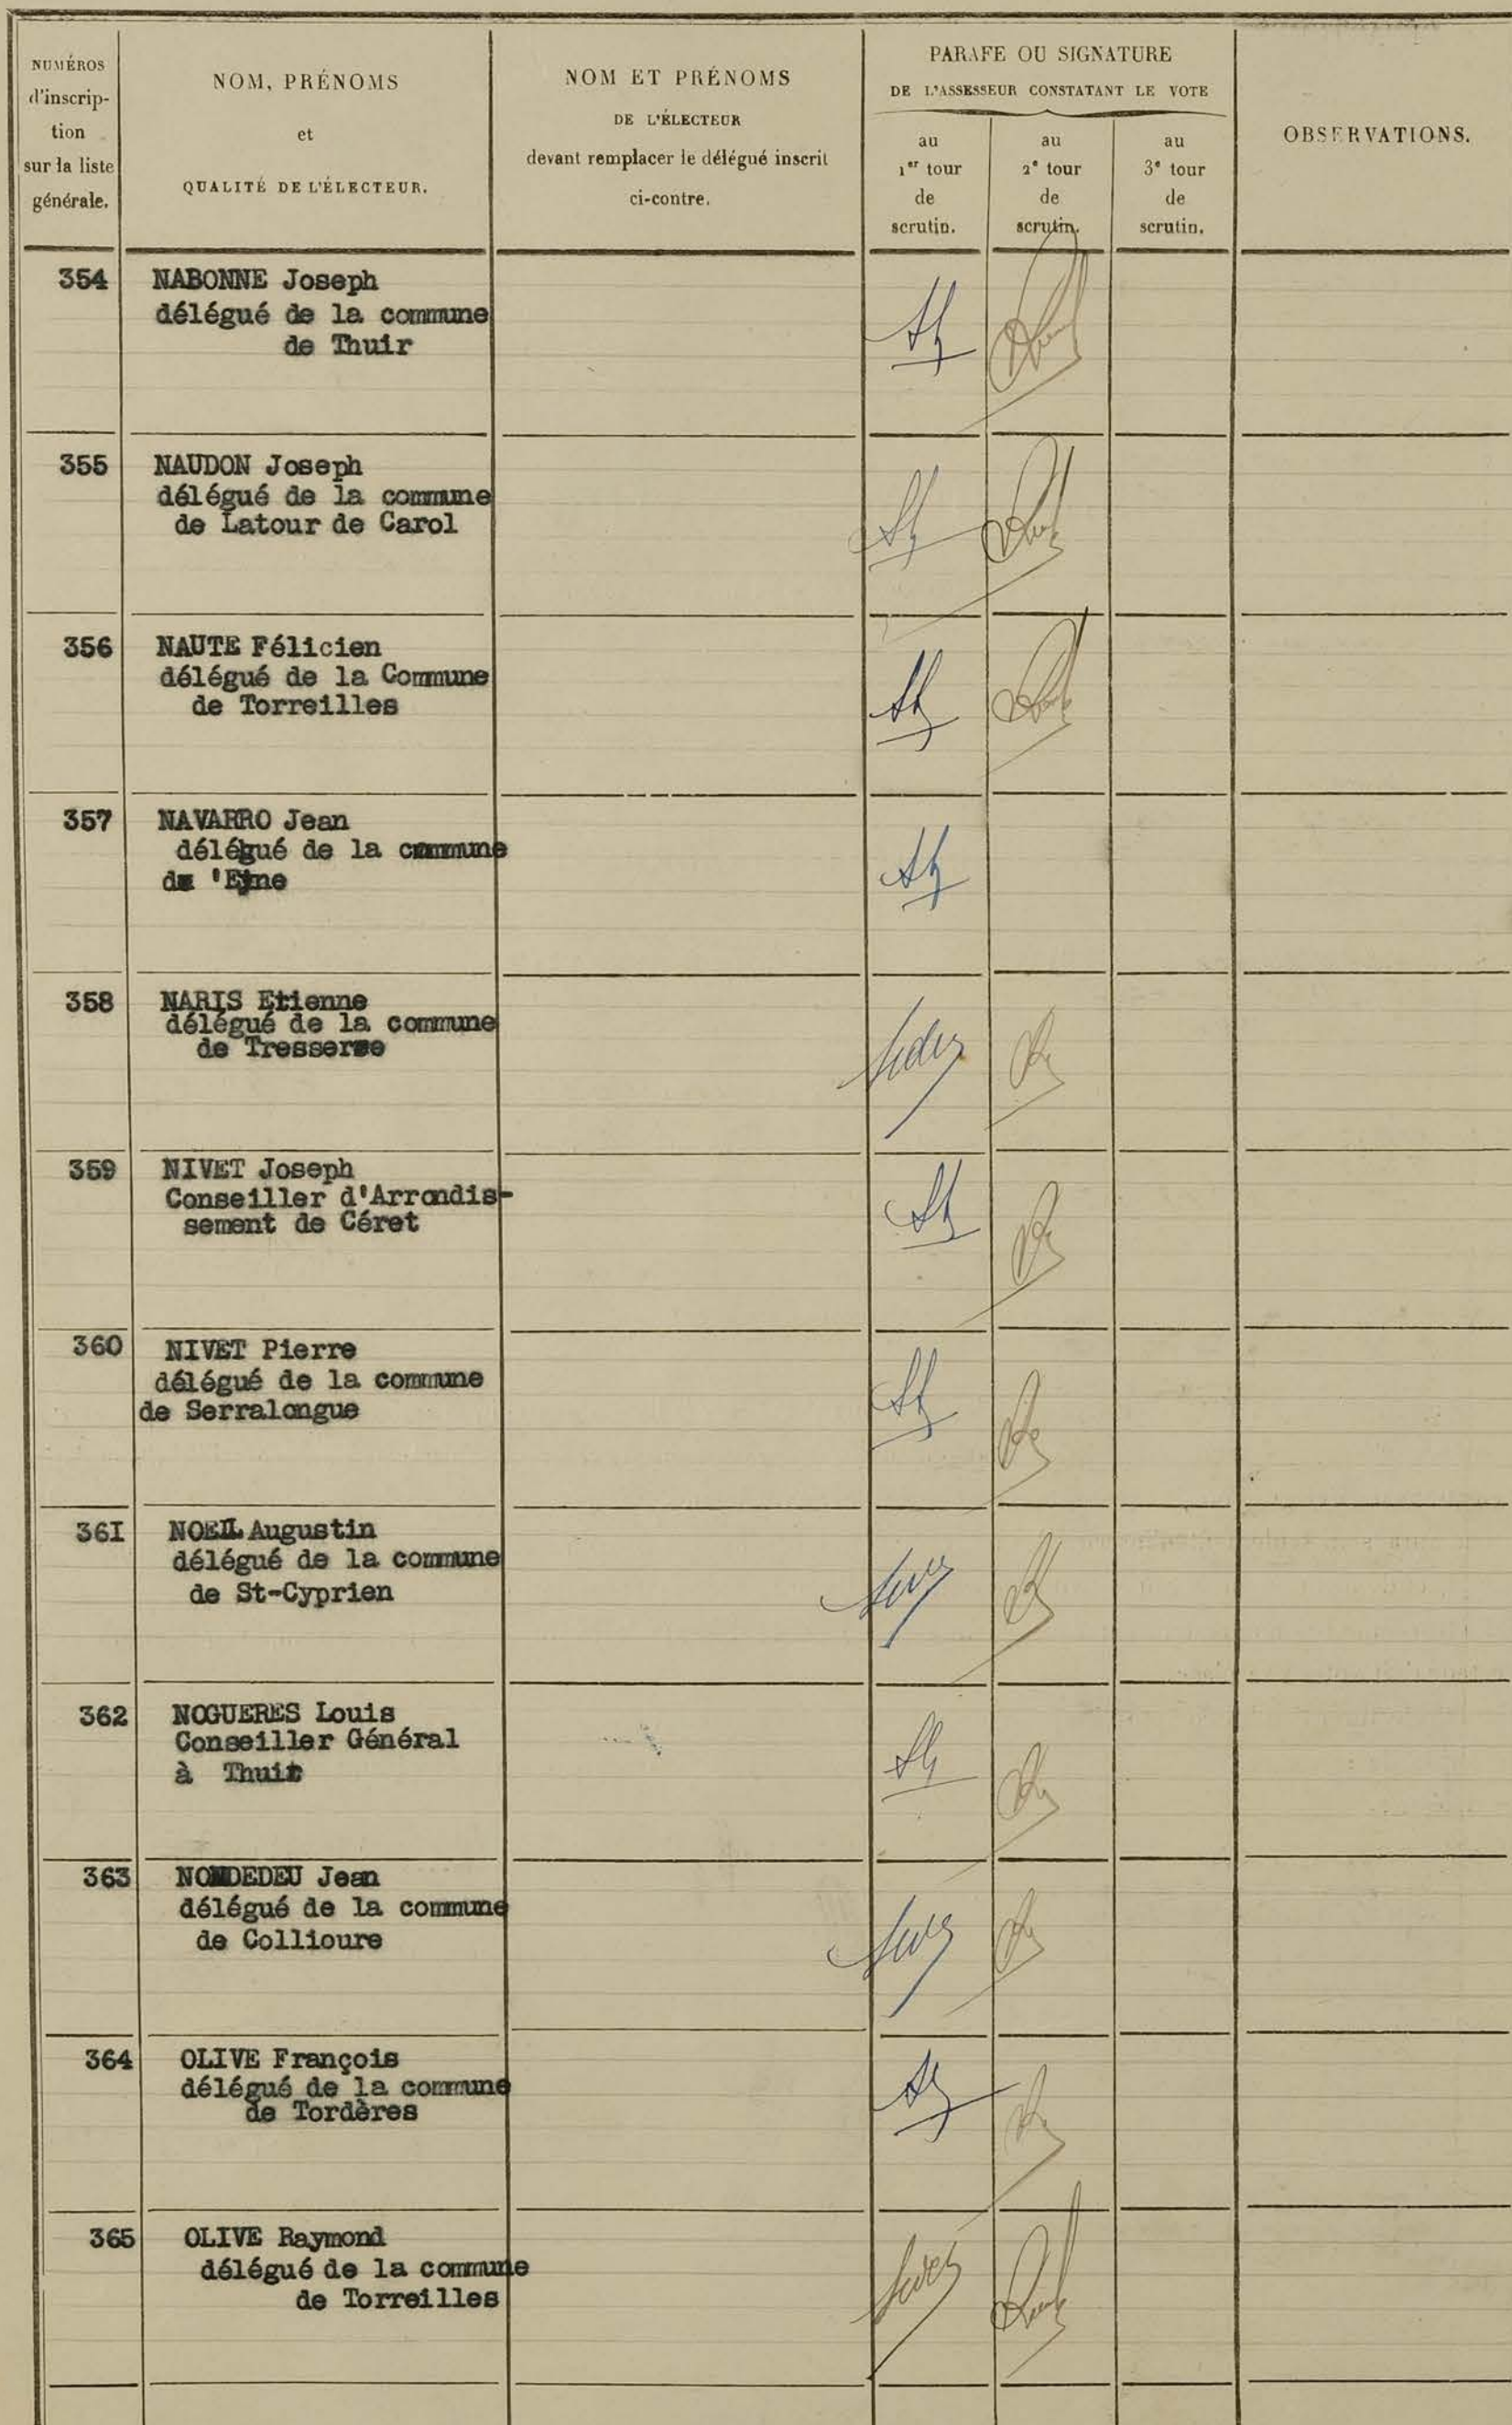 NUMÉROS
d'inscrip-
tion
sur la liste
générale.
NOM, PRÉNOMS
et
QUALITÉ DE L'ÉLECTEUR.
NOM ET PRÉNOMS
DE L'ÉLECTEUR
devant remplacer le délégué inscrit
ci-contre.
PARAFE OU SIGNATURE
DE L'ASSESSEUR CONSTATANT LE VOTE
au
1er tour
de
scrutin.
au
2e tour
de
scrutin.
au
3e tour
de
scrutin.
OBSERVATIONS.
354 NABONNE Joseph
délégué de la commune
de Thuir
355 NAUDON Joseph
délégué de la commune
de Latour de Carol
356 NAUTE Félicien
délégué de la Commune
de Torreilles
357 NAVARRO Jean
délégué de la commune
d'Eyne
358 NARIS Etienne
délégué de la commune
de Tresserre
359 NIVET Joseph
Conseiller d'Arrondis-
sement de Céret
360 NIVET Pierre
délégué de la commune
de Serralongue
36I NOELL Augustin
délégué de la commune
de St-Cyprien
362 NOGUERES Louis
Conseiller Général
à Thuir
363 NOMDEDEU Jean
délégué de la commune
de Collioure
364 OLIVE François
délégué de la commune
de Tordères
365 OLIVE Raymond
délégué de la commune
de Torreilles